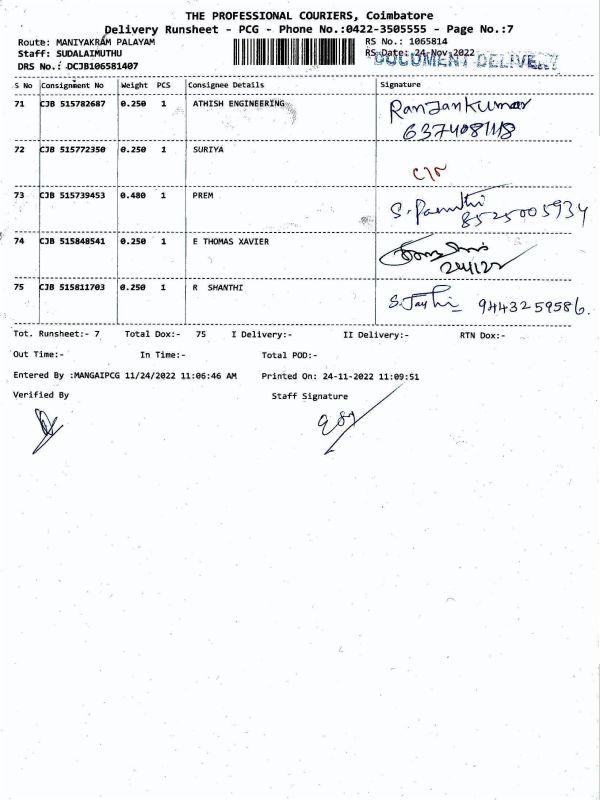 THE PROFESSIONAL COURIERS, Coimbatore
Delivery Runsheet - PCG - Phone No.:0422-3505555 - Page No.:7
Route: MANIYAKRAM PALAYAM
RS No.: 1065814
Staff: SUDALAIMUTHU
RS Date: 24-Nov-2022
DOCUMENT DELIVE
DRS No.: DCJB106581407
S No Consignment No Weight PCS Consignee Details Signature
71 CJB 515782687 0.250 1 ATHISH ENGINEERING Ranjankumar
72 CJB 515772350 0.250 1 SURIYA
73 CJB 515739453 0.480 1 PREM S.
8525005934
74 CJB 515848541 0.250 1 E THOMAS XAVIER
75 CJB 515811703 0.250 1 R SHANTHI 9443259586.
Tot. Runsheet:- 7 Total Dox:- 75 I Delivery:- II Delivery:- RTN Dox:-
Out Time:- In Time:- Total POD:-
Entered By :MANGAIPCG 11/24/2022 11:06:46 AM Printed On: 24-11-2022 11:09:51
Verified By Staff Signature